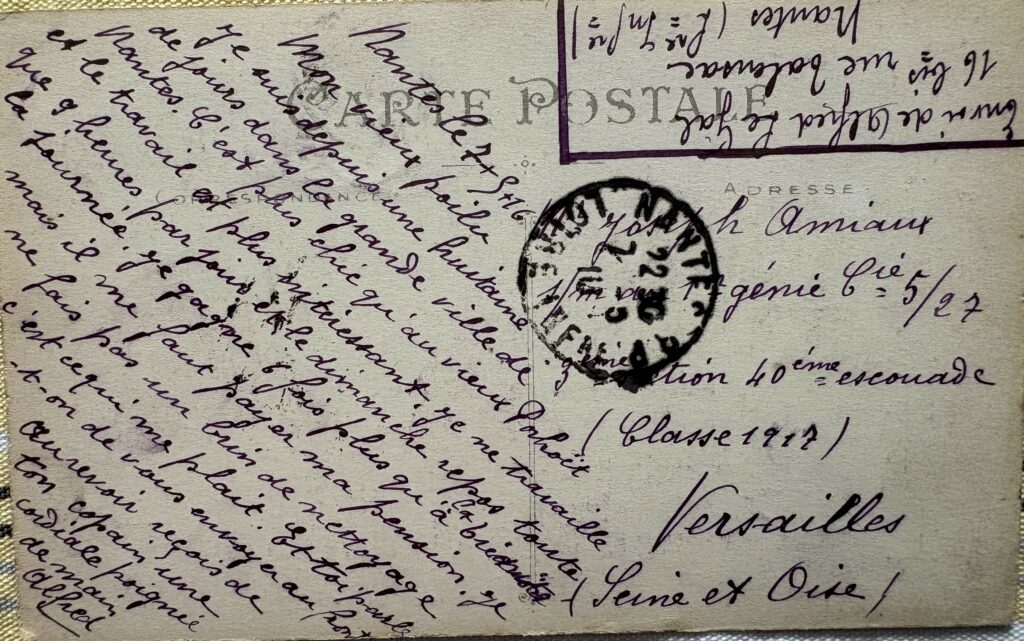 CARTE POSTALE
CORRESPONDANCE
ADRESSE
Nantes le 7+5+16
Mon vieux poilu
Je suis depuis une huitaine
de jours dans la grande ville de
Nantes. C'est plus chic qu'au vieux
et le travail est plus intéressant. Je ne travaille
que 9 heures par jour et le dimanche repos toute
la journé. Je gagne 2 fois plus qu'à
mais il me faut payer ma pension. Je
ne fais pas un brin de nettoyage
c'est ce qui me plait. Et toi parle
-t-on de vous envoyer au front
Au revoir reçois de
ton copain une
cordiale poignée
de main
Alfred
Envoi de Alfred Le Gal
16 bis rue
Nantes (Lre Infre)
NANTES
7 5
Mr Joseph Amiaux
s/m au 1er génie Cie 5/27
3ème section 40ème escouade
(Classe 1917)
Versailles
(Seine et Oise)